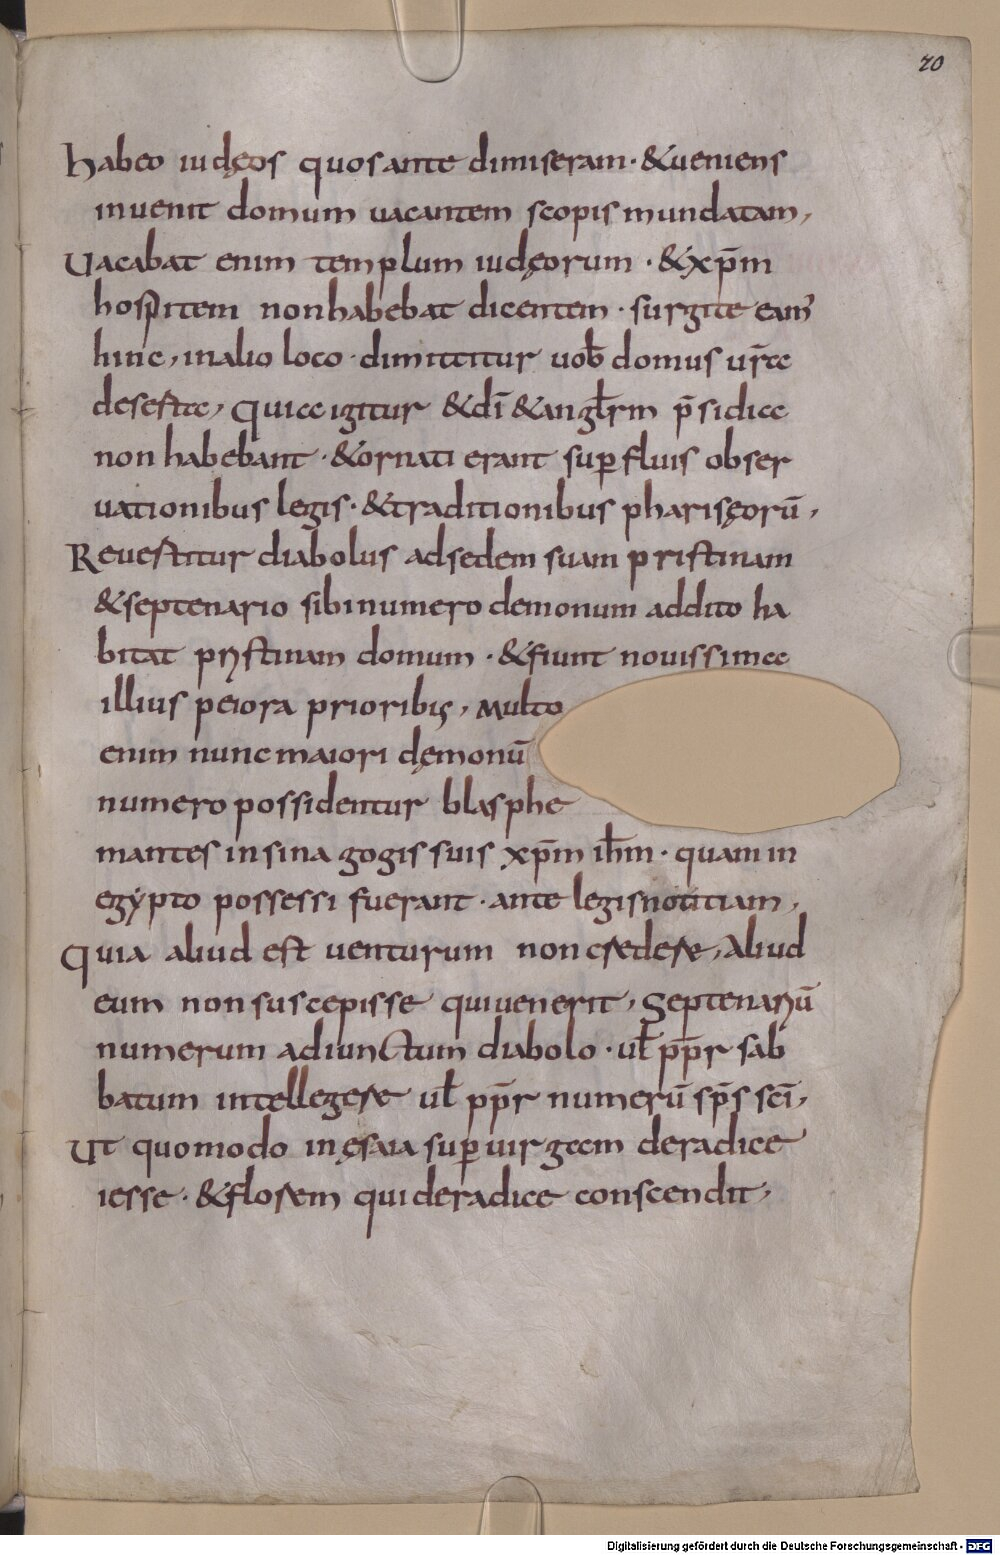 20
habeo iudęos quos ante dimiseram · & ueniens
inuenit domum uacantem scopis mundatam,
Uacabat enim templum iudęorum · & xp̄m
hospitem non habebat dicentem · surgite eam'
hinc, in alio loco · dimittitur uob̄ domus ur̄a
deserta, Quia igitur & dī & anglr̄m p̄sidia
non habebant · & ornati erant sup̱fluis obser
uationibus legis · & traditionibus pharisęorū,
Reuertitur diabolus ad sedem suam pristinam
& septenario sibi numero demonum addito ha
bitat pristinam domum · & fiunt nouissima
illius peiora priorib;, Multo
enim nunc maiori dęmonū
numero possidentur blasphe
mantes in sinagogis suis xp̄m ih̄m · quam in
egẏpto possessi fuerant · ante legis notitiam,
Quia aliud est uenturum non credere, Aliud
eum non suscepisse qui uenerit, Septenariū
numerum adiunctum diabolo · ul̄ pp̄r sab
batum intellegere ul̄ pp̄r numerū sp̄s sc̄i,
Ut quomodo in ęsaia sup̱ uirgam de radice
iesse · & florem qui de radice conscendit,
Digitalisierung gefördert durch die Deutsche Forschungsgemeinschaft - DFG